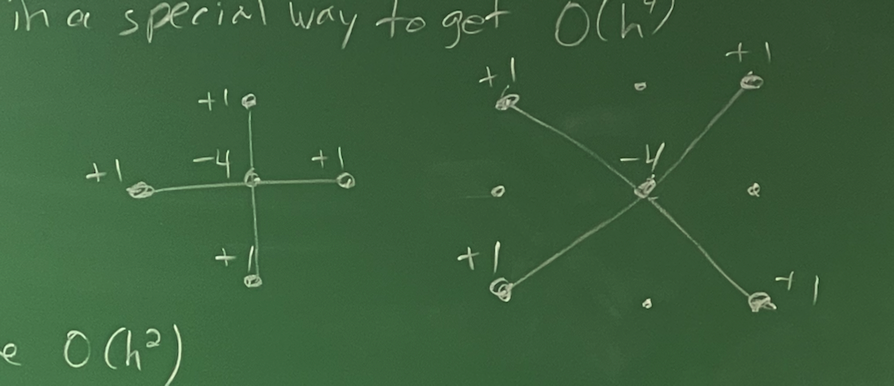 in a special way to get O(h⁴)
+1 +1
+1
+1 -4 +1 -4
+1 +1
+1
+1
e O(h²)